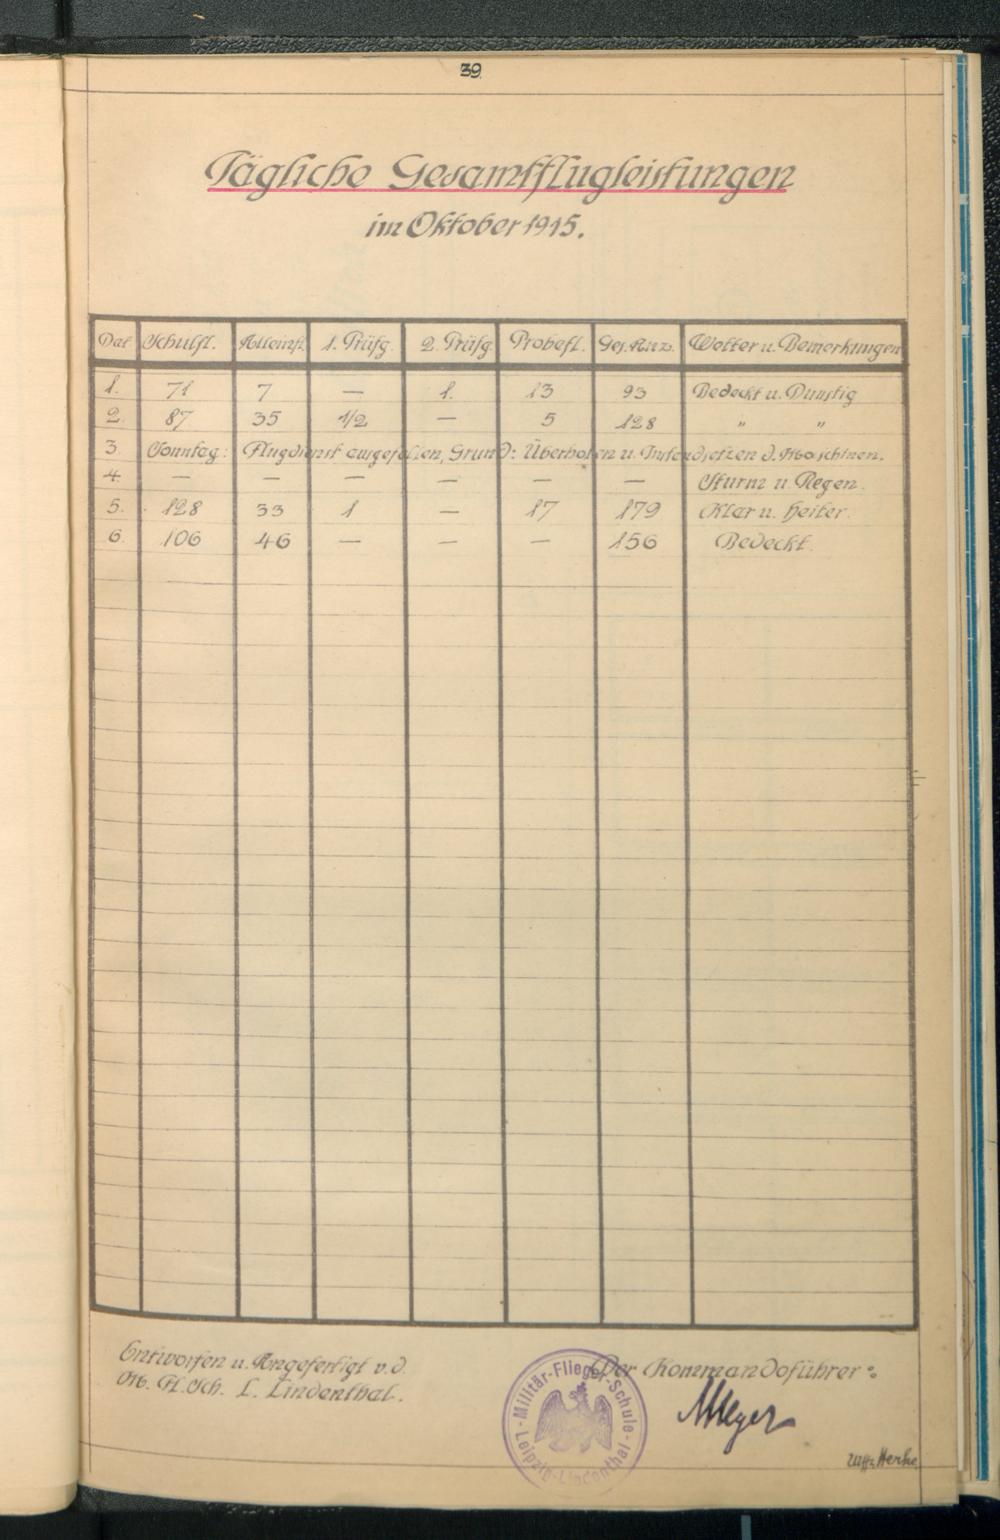 39.
Tägliche Gesamtflugleistungen
im Oktober 1915.
Dat. Schulfl. Alleinfl. 1. Prüfg. 2. Prüfg. Probefl. Ges. Anz. Wetter u. Bemerkungen
1. 71 7 — 1. 13 93 Bedeckt u. Dunstig
2. 87 35 1/2 — 5 128 " "
3. Sonntag: Flugdienst ausgefallen, Grund: Überholen u. Instandsetzen d. Maschinen.
4. — — — — — — Sturm u. Regen.
5. 128 33 1 — 17 179 Klar u. heiter.
6. 106 46 — — — 156 Bedeckt.
Entworfen u. Angefertigt v. d.
M. Fl. Sch. L. Lindenthal.
Der Kommandoführer:
Militär-Flieger-Schule
Leipzig-Lindenthal
Meyer
Uffz.